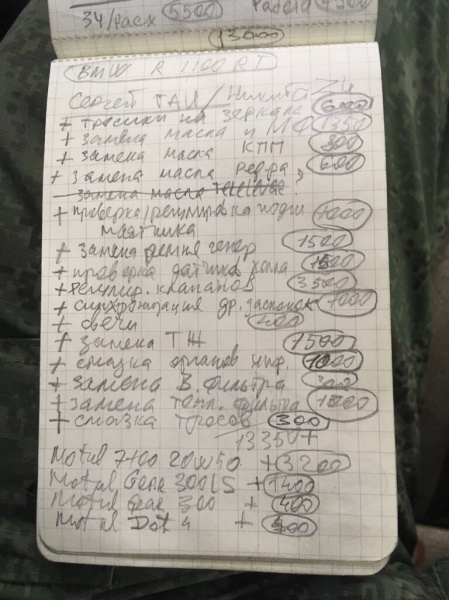 З4/Расх 5500
13000
BMW R 1100 RT
Сергей ТАИ/Никита 24
+ тросики на зеркала 600
+ замена масла и МФ 1350
+ замена масла КПП 300
+ замена масла редра, 600
замена масла
+ проверка/регулировка подш 1000
маятника
+ замена ремня генер 1500
+ проверка датчика холла 1500
+ регулир. клапанов 3500
+ синхронизация др. заслонок 1000
+ свечи 400
+ замена ТЖ 1500
+ смазка органов упр. 1000
+ замена В. фильтра 300
+ замена топл. фильтра 1000
+ смазка тросов 300
13350+
Motul 7100 20W50 +3200
Motul Gear 300LS +1400
Motul Gear 300 + 400
Motul Dot 4 +